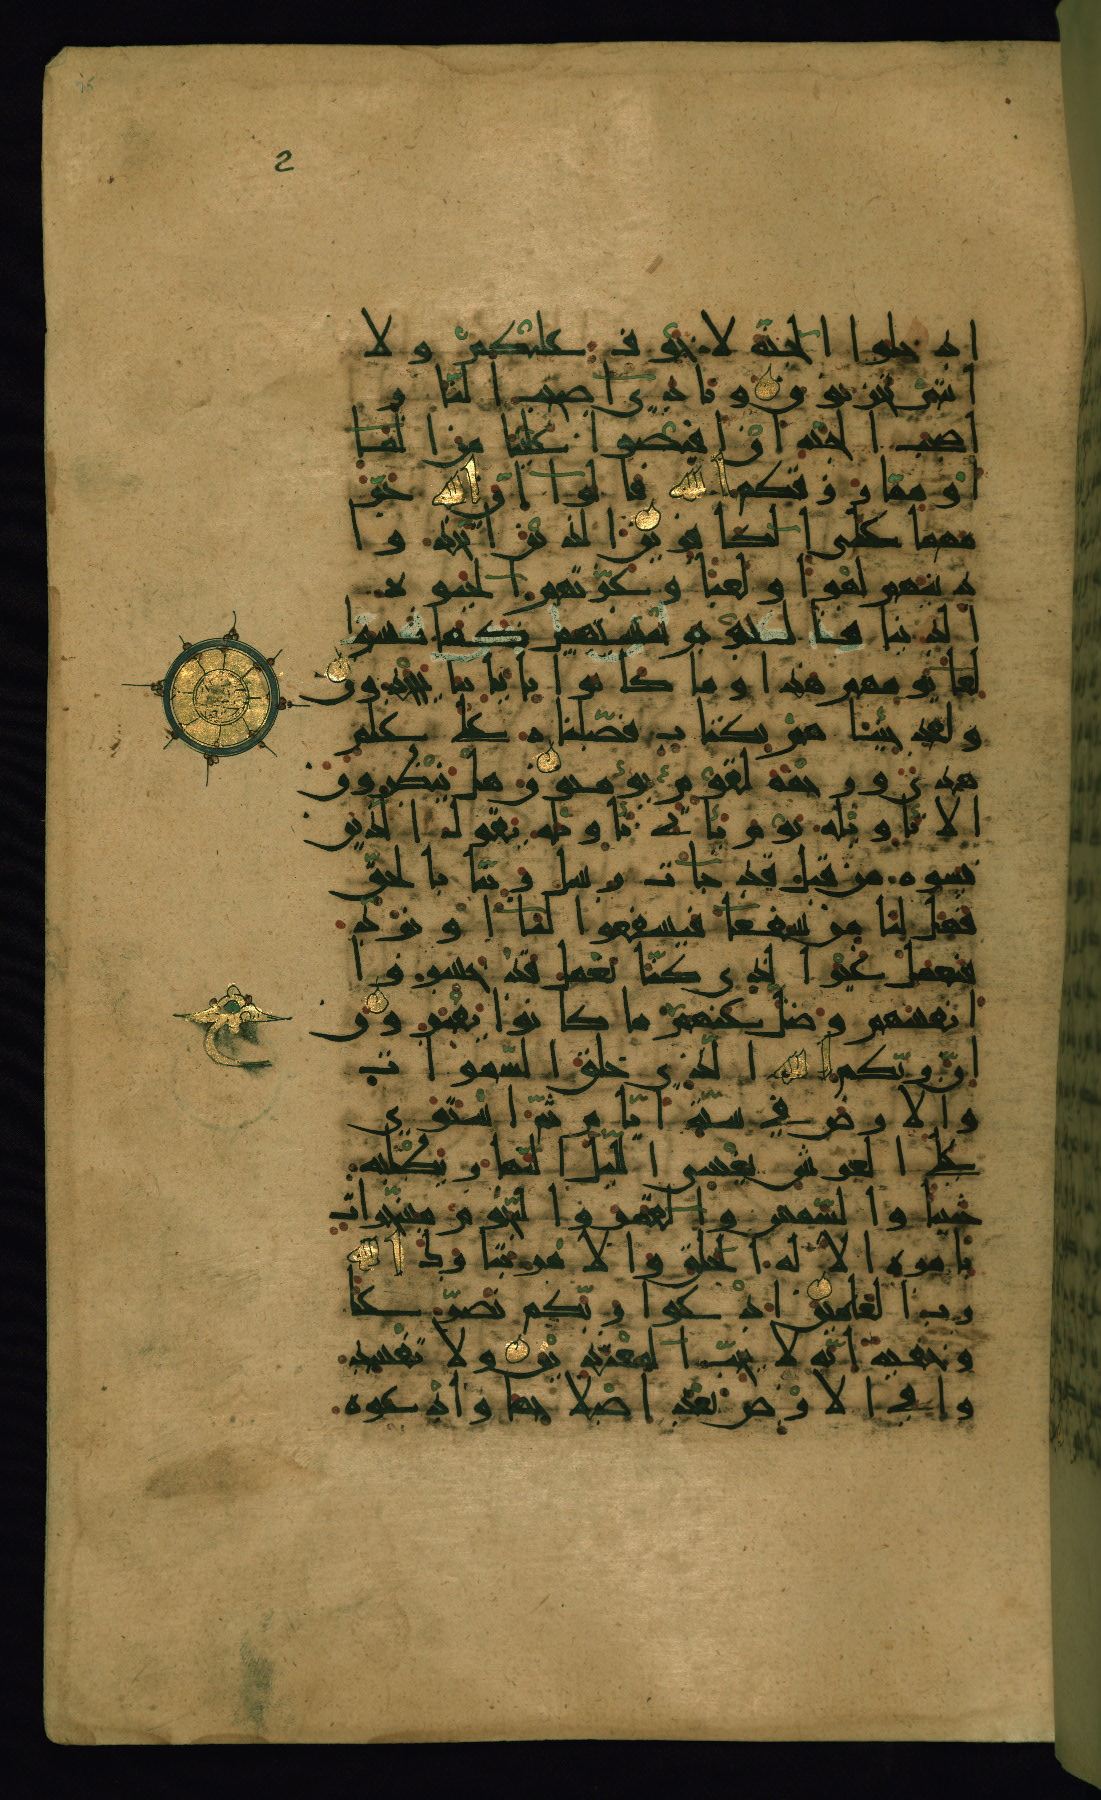 2
ادخلوا الجنة لا خوف عليكم ولا
انتم تحزنون ونادى اصحب النار
اصحب الجنة ان افيضوا علينا من الما
او مما رزقكم الله قالوا ان الله حرّ
مهما على الكافرين الذين اتخذوا
دينهم لهوا ولعبا وغرّتهم الحيوة
الدنيا فاليوم ننسيهم كما نسوا
لقا يومهم هذا وما كانوا باياتنا يجحدون
ولقد جئناهم بكتاب فصّلناه على علم
هدى ورحمة لقوم يومنون هل ينظرون
الا تاويله يوم ياتي تاويله يقول الذين
نسوه من قبل قد جات رسل ربّنا بالحقّ
فهل لنا من شفعا فيشفعوا لنا او نردّ
فنعمل غير الذي كنّا نعمل قد خسروا
انفسهم وضلّ عنهم ما كانوا يفترون
انّ ربّكم الله الّذي خلق السّموات
والارض في ستّة ايّام ثمّ استوى
على العرش يغشي اللّيل النّهار يطلبه
حثيثا والشّمس والقمر والنّجوم مسخّرات
بامره الا له الخلق والامر تبارك الله
ربّ العالمين ادعوا ربّكم تضرّعا
وخفية انّه لا يحبّ المعتدين ولا تفسد
وا في الارض بعد اصلاحها وادعوه